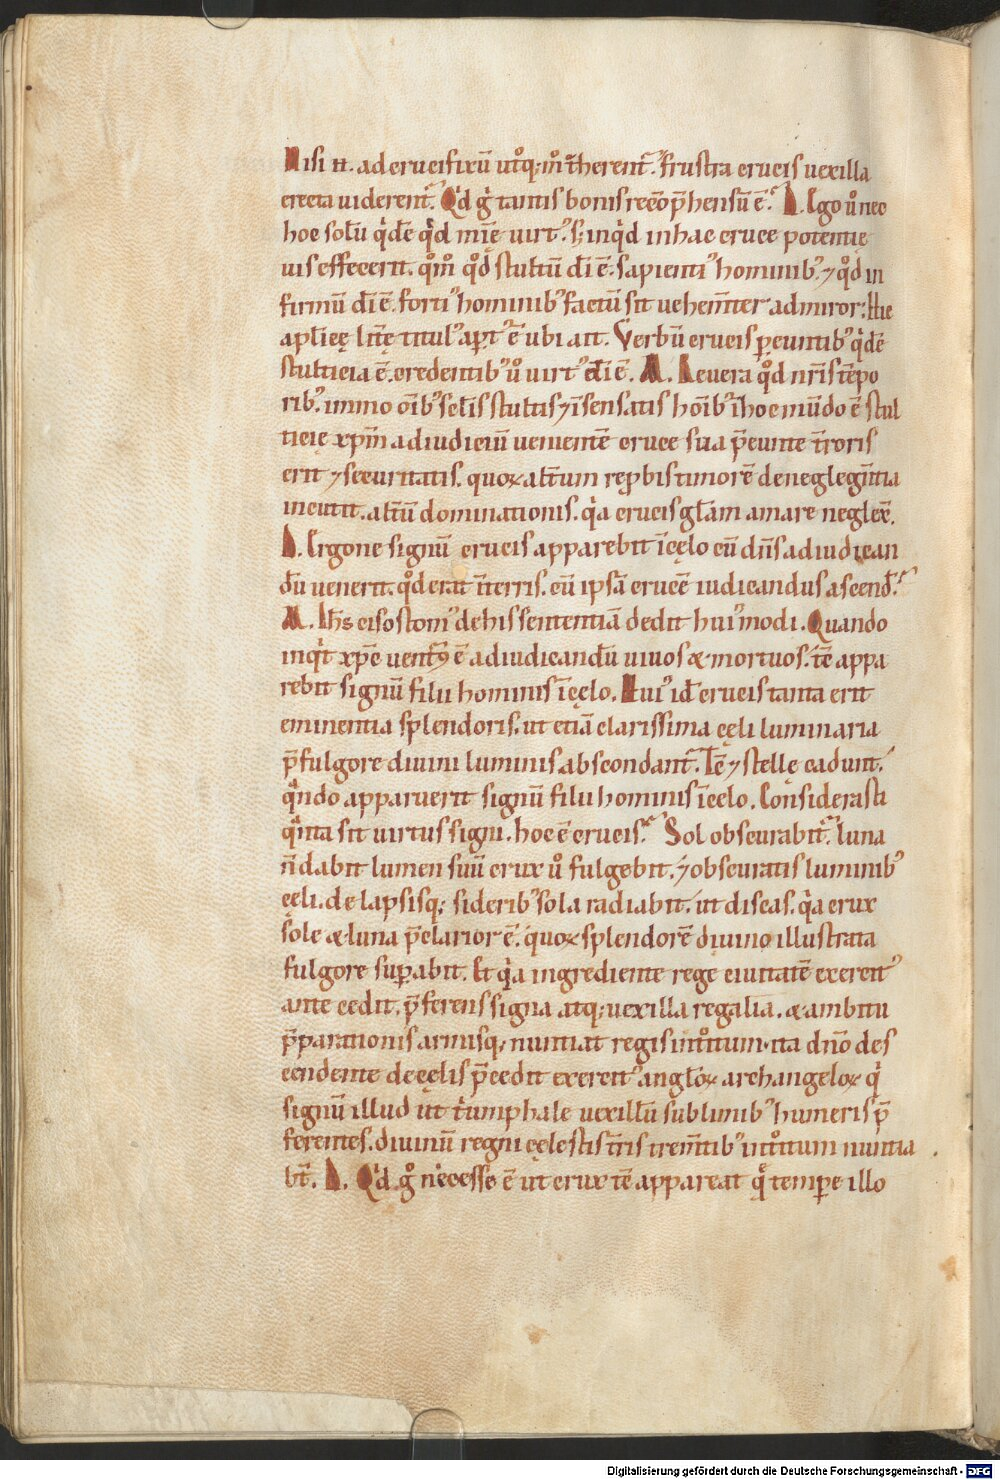 Nisi n̄. ad crucifixū utq; m̊ īherent. frustra crucis uexilla
erecta uiderent. Qd g̊ tantis bonis rec̄o p̄hensū ē. D. Ego ů nec
hoc solū qdē qd mīę uirt'. s; inqd in hac cruce potentię
uis effecerit. qm̊ qd stultū dī ē. sapienti' hominib' ⁊ qd in
firmū dī ē. forti' hominib' factū sit uehem̄ter admiror. Hic
aplicę littę titul' apt' ē ubi ait. Verbū crucis pereuntib' qdē
stulticia ē. credentib' ů uirt' dī ē. M. Reuera qd nr̄is tēpo
rib'. immo oīb' sclis stultis ⁊ īsensatis hoīb' ī hoc mundo ē stul
ticię xp̄m ad iudiciū uenientē cruce sua p̄eunte tr̄oris
erit ⁊ securitatis. quoꝝ altum rep̄bis timorē de neglegn̄tia
incutit. altū dominationis. qa crucis glam amare neglex̄.
D. Ergone signū crucis apparebit ī cęlo cū dn̄s ad iudican
dū uenerit. qd erat ī terris. cū ipsā crucē iudicandus ascend̄.
M. Ioh̄s crisostom' de his sententiā dedit hui'modi. Quando
inqt xp̄c uentur' ē ad iudicandū uiuos & mortuos. tē appa
rebit signū filii hominis ī cęlo. Hui' id̄ crucis tanta erit
eminentia splendoris. ut etiā clarissima cęli luminaria
p̄ fulgore diuini luminis abscondant. Tē ⁊ stellę cadunt.
qndo apparuerit signū filii hominis ī cęlo. Considerasti
qnta sit uirtus signi. hoc ē crucis. Sol obscurabit. luna
n̄ dabit lumen suū crux ů fulgebit. ⁊ obscuratis luminib'
cęli. delapsisq; siderib' sola radiabit. ut discas. qa crux
sole & luna p̄clarior ē. quoꝝ splendorē diuino illustrata
fulgore superabit. Et qa ingrediente rege ciuitatē exercit'
ante cedit. p̄ferens signa atq; uexilla regalia. & ambitu
p̄parationis armisq; nuntiat regis introitum. ita dn̄o des
cendente de cęlis p̄cedit exercit' angloꝝ archangeloꝝ q
signū illud ut triumphale uexillū sublimib' humeris p̄
ferentes. diuinū regni cęlestis tr̄is trem̄tib' introitum nuntia
bt̄. D. Qd g̊ necesse ē ut crux tē appareat q tempore illo
Digitalisierung gefördert durch die Deutsche Forschungsgemeinschaft - DFG